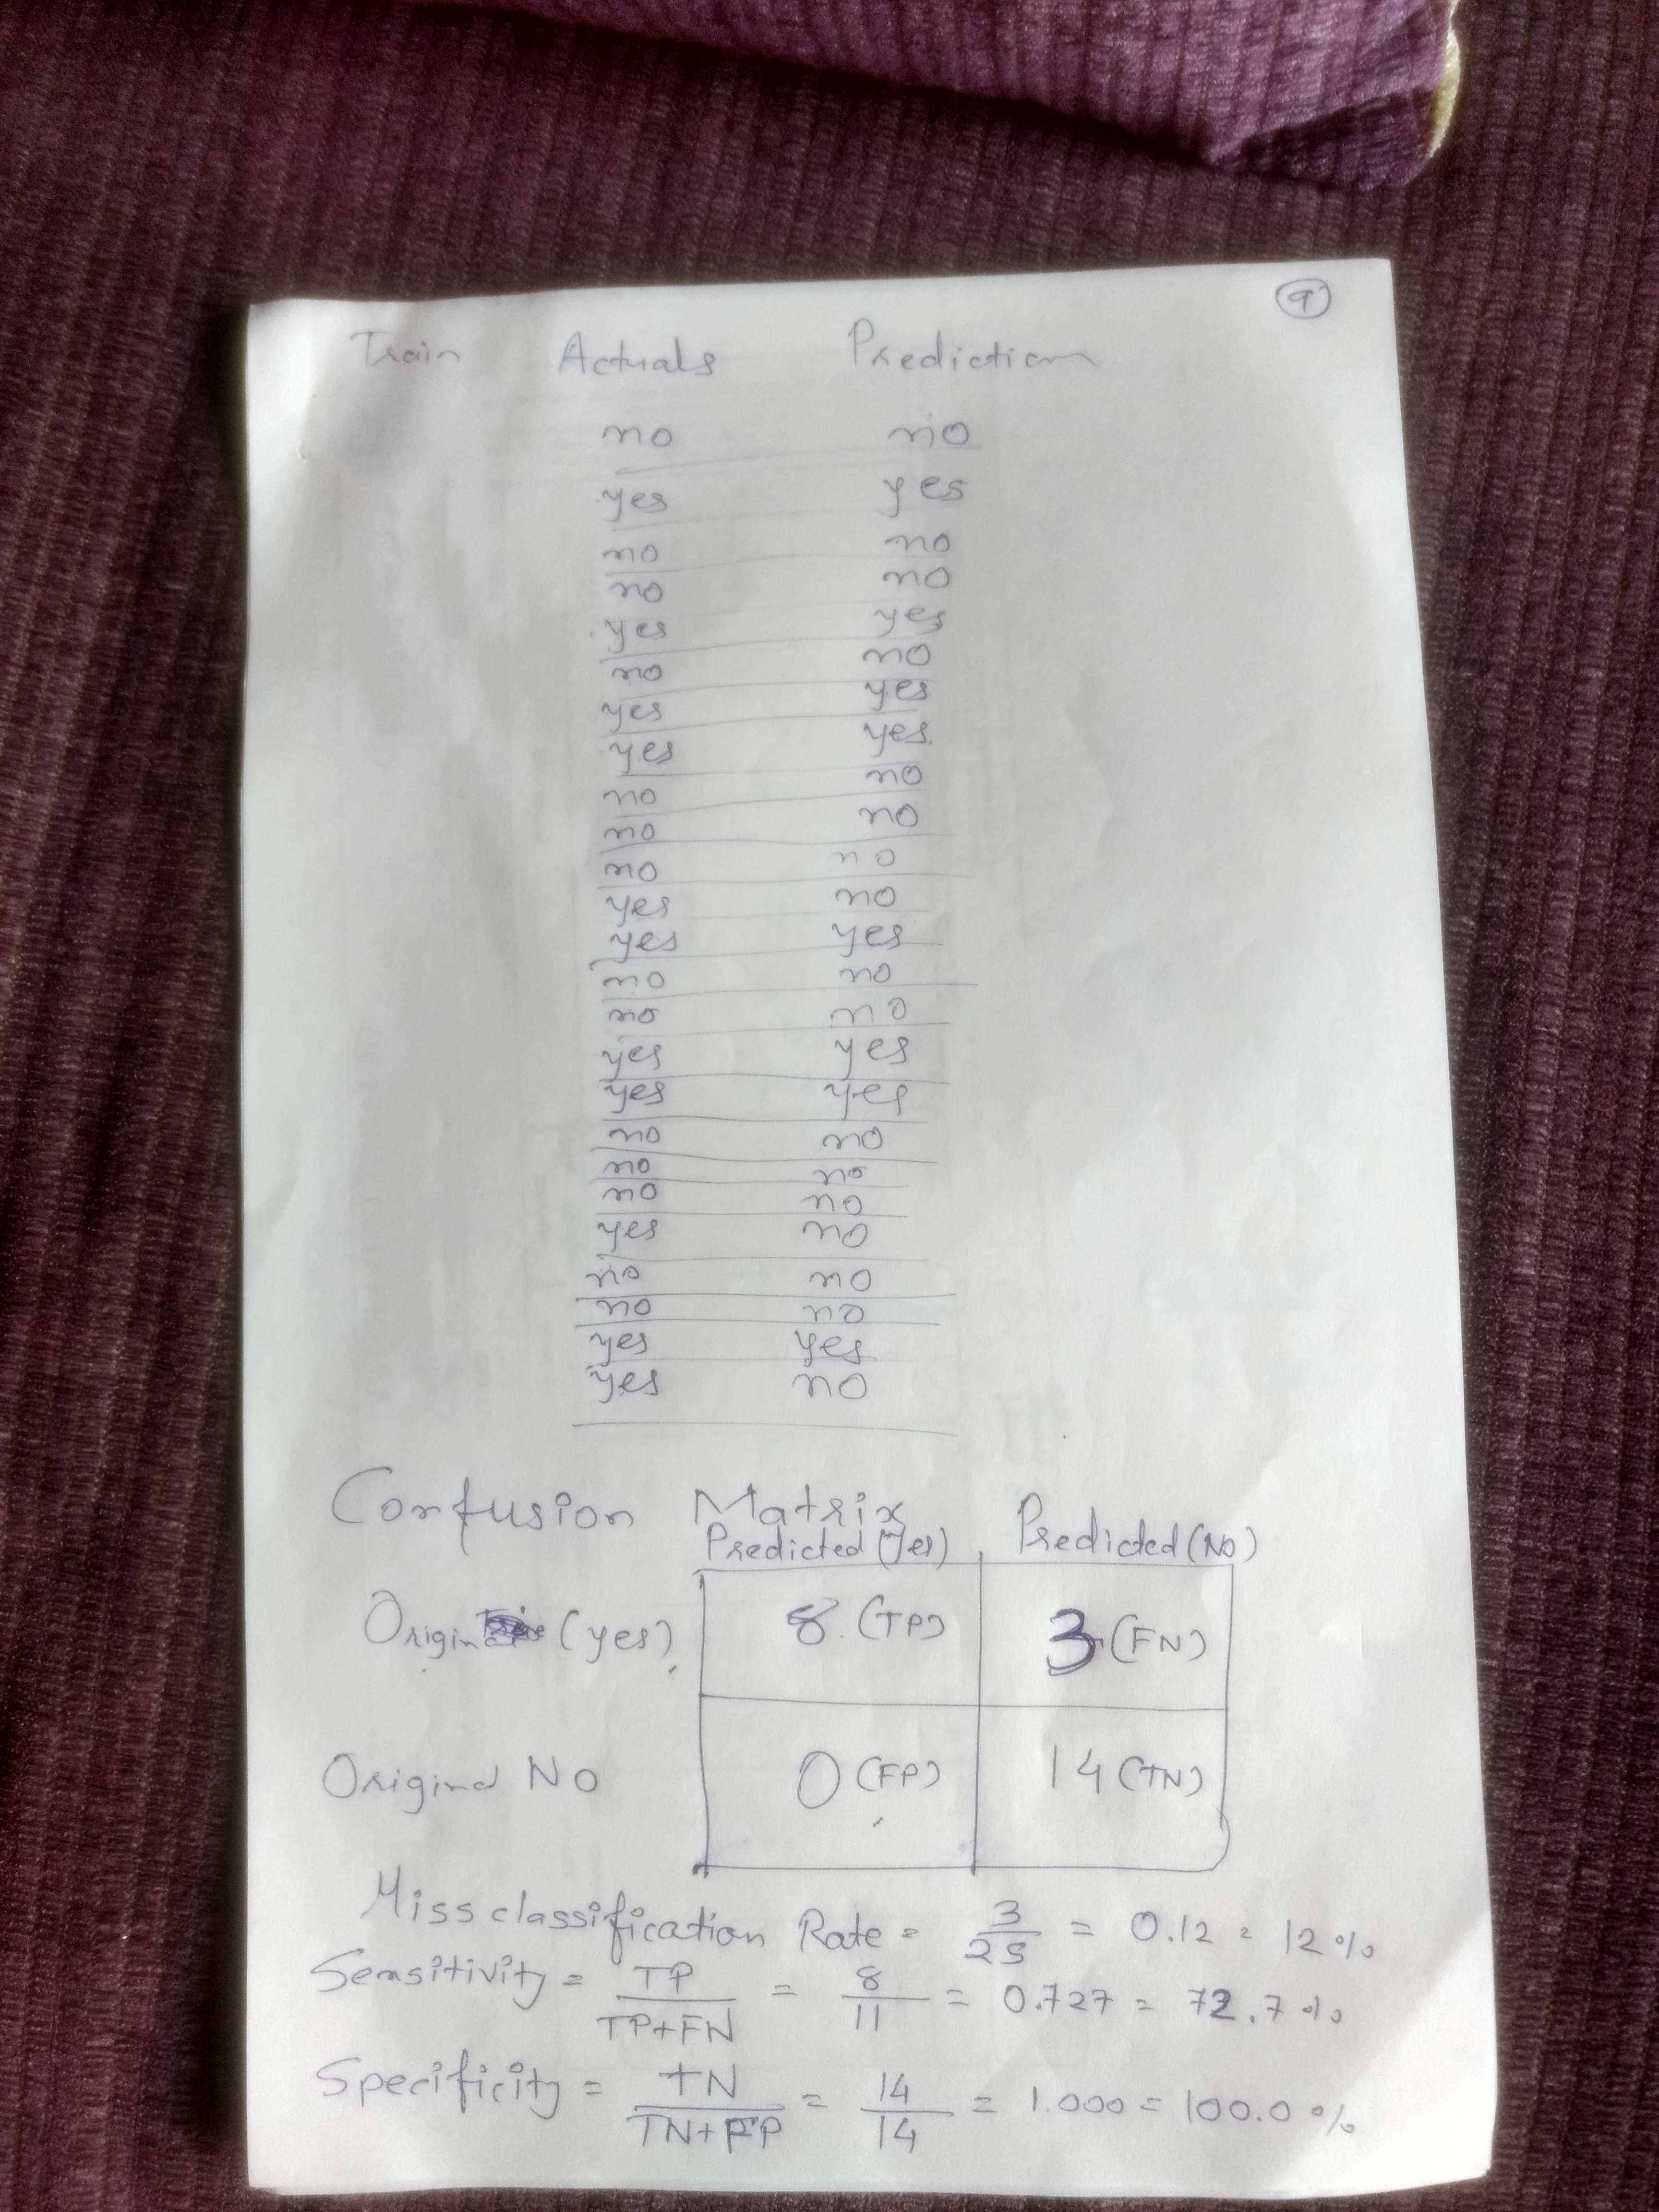 9
Train Actuals Prediction
no no
yes yes
no no
no no
yes yes
no no
yes yes
yes yes.
no no
no no
no no
yes no
yes yes
no no
no no
yes yes
yes yes
no no
no no
no no
yes no
no no
no no
yes yes
yes no
Confusion Matrix
Predicted (Yes) Predicted (No)
(yes) 8 (TP) 3 (FN)
Original No 0 (FP) 14 (TN)
Miss classification Rate = 3/25 = 0.12 = 12%
Sensitivity = TP/TP+FN = 8/11 = 0.727 = 72.7%
Specificity = TN/TN+FP = 14/14 = 1.000 = 100.0%